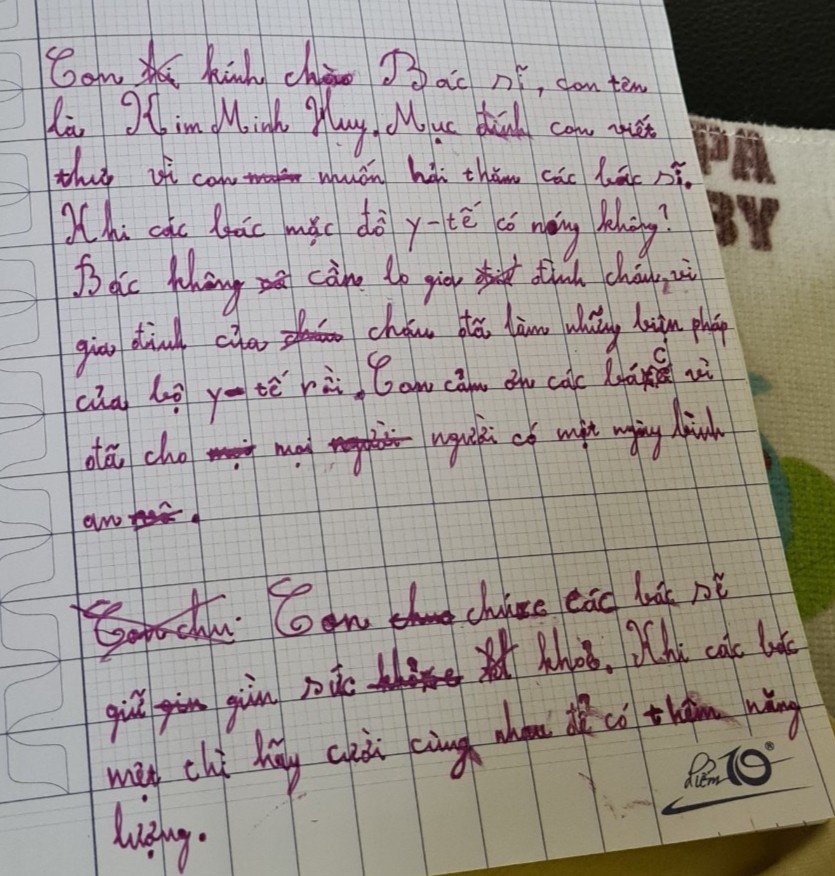 Con kính chào Bác sĩ, con tên
là Kim Minh Huy. Mục đính con viết
thư vì con muốn hỏi thăm các bác sĩ.
Khi các bác mặc đồ y-tế có nóng không?
Bác không cần lo gia đình cháu, vì
gia đình của cháu đã làm những biện pháp
của bộ y-tế rồi. Con cảm ơn các bác vì
đã cho mọi người có một ngày bình
an.
Con chúc các bác sẽ
giữ gìn sức khoẻ. Khi các bác
mệt thì hãy cười cùng nhau để có thêm năng
lượng.
Điểm 10
PA
BY